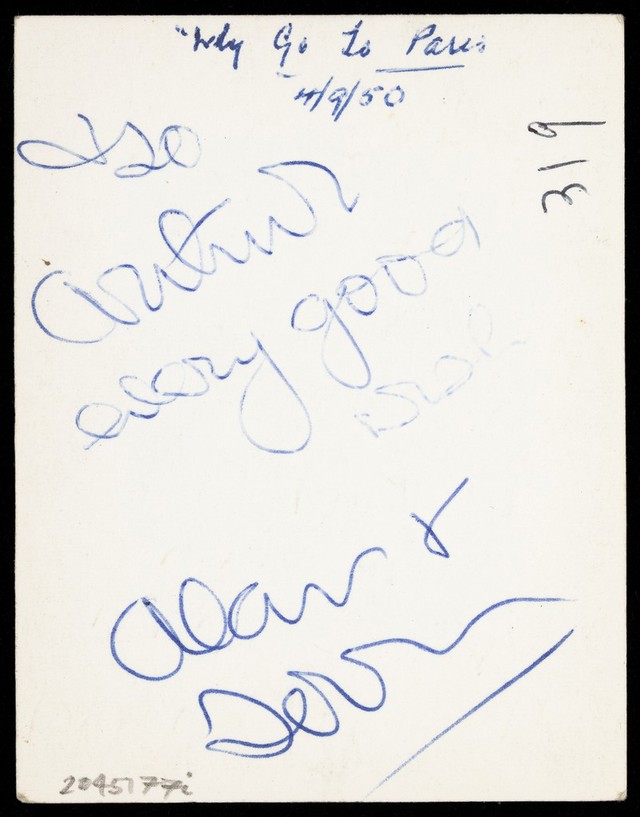 "Why Go To Paris
4/9/50
319
To
Arthur
every good
wish
Alan &
2045177i